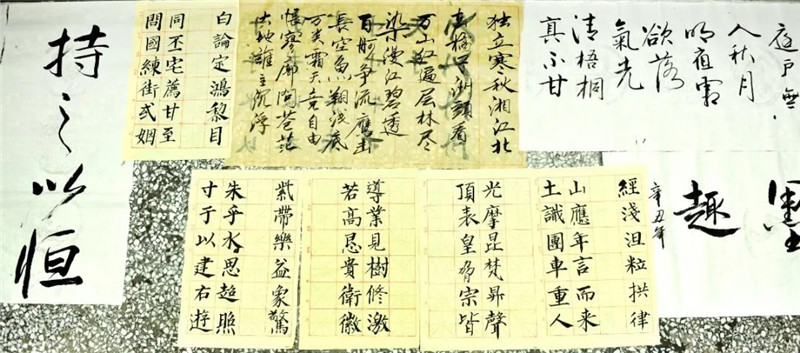 持之以恒
白論定鴻黎目
同丕宅薦甘至
間國練街式姻
独立寒秋湘江北
去橘子洲头看
万山红遍层林尽
染漫江碧透
百舸争流鹰击
长空鱼翔浅底
万类霜天竞自由
怅寥廓问苍茫
大地谁主沉浮
庭戸無
入秋月
明宿露
欲落
氣光
清梧桐
真不甘
墨
趣
辛丑年
經淺沮粒拱律
山應年言而来
土識團車重人
光摩昆梵昇聲
頂表皇身宗皆
導業見樹修激
若高恳貴衛徽
紫帶樂益象驚
朱乎水思超照
寸于以建右遊